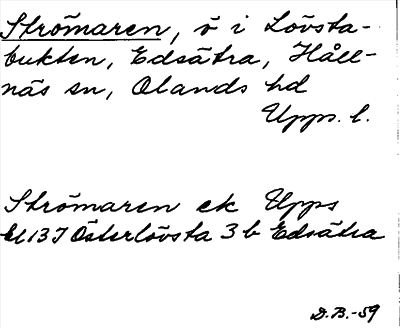 Strömaren, ö i Lövsta-
bukten, Edsätra, Håll-
näs sn, Olands hd
Upps. l.
Strömaren ek Upps
bl 13 I Österlövsta 3 b Edsätra
D.B.-59